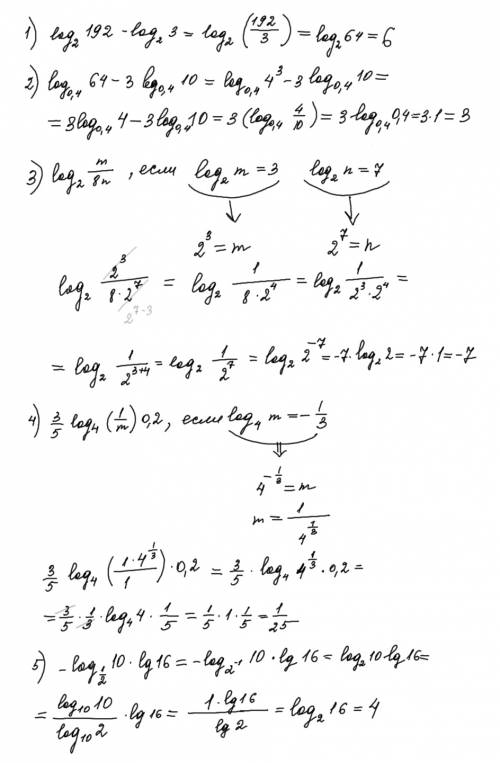 1) log₂ 192 - log₂ 3 = log₂ (192/3) = log₂ 64 = 6
2) log₀,₄ 64 - 3 log₀,₄ 10 = log₀,₄ 4³ - 3 log₀,₄ 10 =
= 3 log₀,₄ 4 - 3 log₀,₄ 10 = 3 (log₀,₄ 4/10) = 3 · log₀,₄ 0,4 = 3·1 = 3
3) log₂ m/8n , если log₂ m = 3 log₂ n = 7
2³ = m 2⁷ = n
log₂ 2³/(8·2⁷) = log₂ 1/(8·2⁴) = log₂ 1/(2³·2⁴) =
2⁷⁻³
= log₂ 1/2³⁺⁴ = log₂ 1/2⁷ = log₂ 2⁻⁷ = -7·log₂ 2 = -7·1 = -7
4) 3/5 log₄ (1/m) 0,2, если log₄ m = -1/3
4^(-1/3) = m
m = 1/4^(1/3)
3/5 log₄ (1·4^(1/3)/1) · 0,2 = 3/5 · log₄ 4^(1/3) · 0,2 =
= 3/5 · 1/3 · log₄ 4 · 1/5 = 1/5 · 1 · 1/5 = 1/25
5) - log_(1/2) 10 · lg 16 = - log_(2⁻¹) 10 · lg 16 = log₂ 10 · lg 16 =
= log₁₀ 10 / log₁₀ 2 · lg 16 = 1 · lg 16 / lg 2 = log₂ 16 = 4